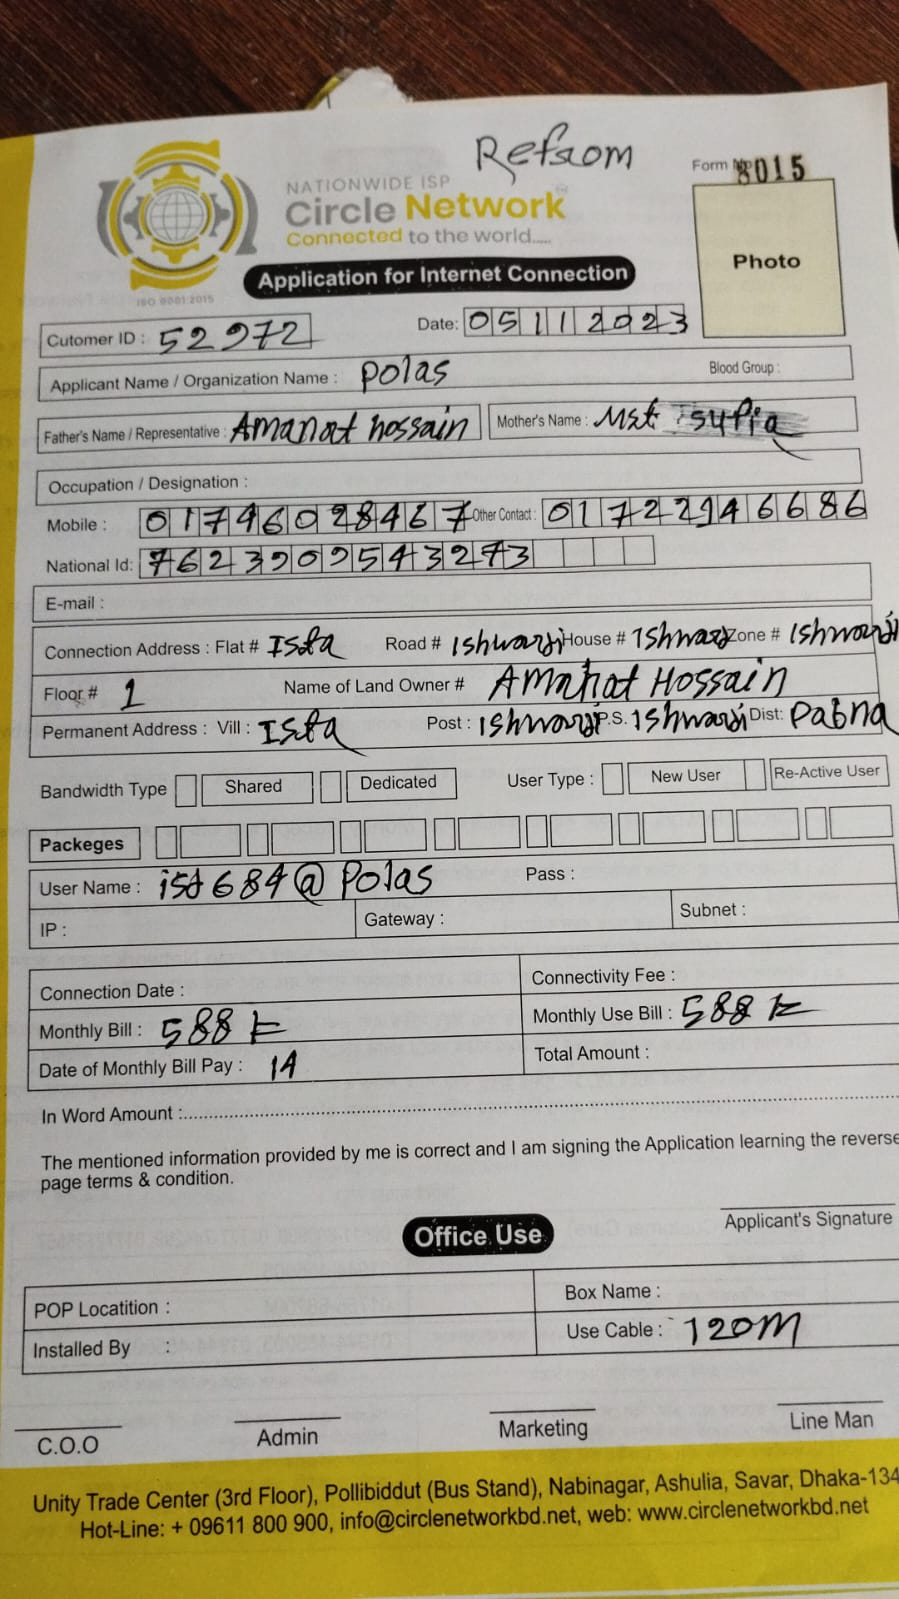 Refsom
Form No 8015
NATIONWIDE ISP
Circle Network
Connected to the world.....
ISO 9001:2015
Application for Internet Connection
Photo
Cutomer ID : 52972 Date: 05112023
Applicant Name / Organization Name : Polas Blood Group :
Father's Name / Representative : Amanat hossain Mother's Name : Mst Sufia
Occupation / Designation :
Mobile : 01746028467 Other Contact : 01722946686
National Id: 7623909543273
E-mail :
Connection Address : Flat # Ista Road # Ishwardi House # Ishwardi Zone # Ishwardi
Floor # 1 Name of Land Owner # Amanat Hossain
Permanent Address : Vill : Ista Post : Ishwardi P.S. Ishwardi Dist: Pabna
Bandwidth Type Shared Dedicated User Type : New User Re-Active User
Packeges
User Name : ist684@Polas Pass :
IP : Gateway : Subnet :
Connection Date : Connectivity Fee :
Monthly Bill : 588 Monthly Use Bill : 588
Date of Monthly Bill Pay : 14 Total Amount :
In Word Amount :
The mentioned information provided by me is correct and I am signing the Application learning the reverse
page terms & condition.
Applicant's Signature
Office Use
POP Locatition : Box Name :
Installed By : Use Cable : 120M
C.O.O Admin Marketing Line Man
Unity Trade Center (3rd Floor), Pollibiddut (Bus Stand), Nabinagar, Ashulia, Savar, Dhaka-134
Hot-Line: + 09611 800 900, info@circlenetworkbd.net, web: www.circlenetworkbd.net